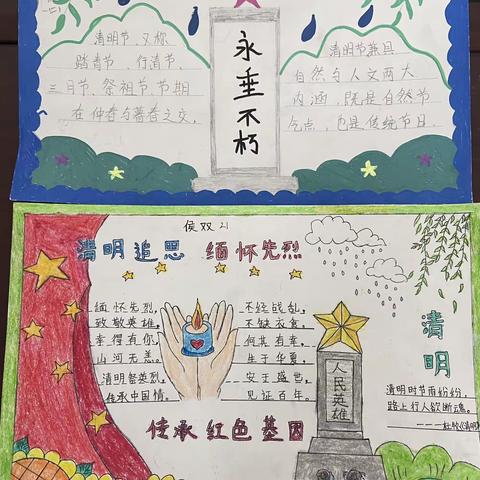 清明节、又称
踏青节、行清节、
三月节、祭祖节节期
在仲春与暮春之交,
永垂不朽
清明节兼具
自然与人文两大
内涵,既是自然节
气点,也是传统节日.
侯双21
清明追思 缅怀先烈
缅怀先烈,
致敬英雄,
幸得有你,
山河无恙。
清明祭英烈,
传承中国情。
不经战乱,
不缺衣食,
何其有幸,
生于华夏,
安于盛世,
见证百年。
传承红色基因
人民英雄
清明
清明时节雨纷纷,
路上行人欲断魂。
----杜牧《清明》